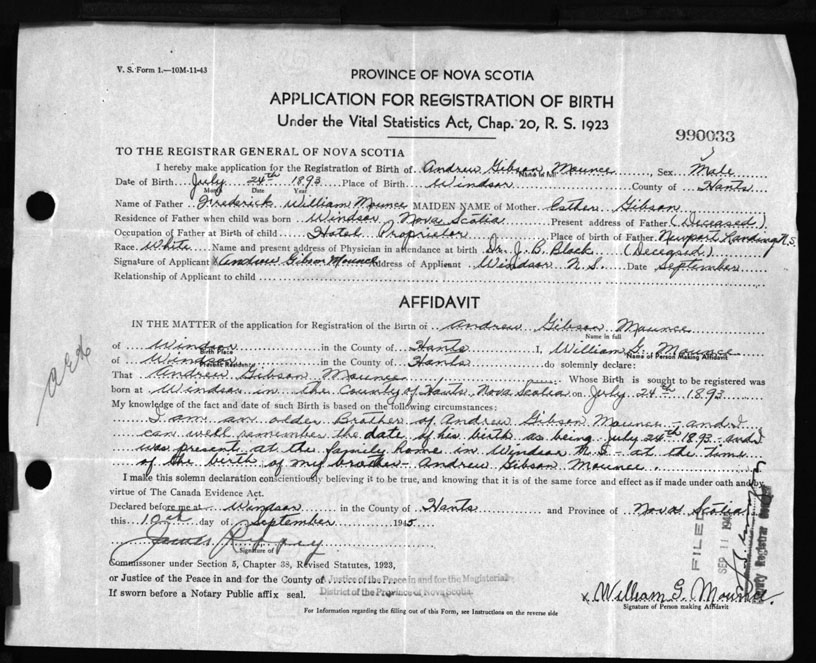 V. S. Form 1.—10M-11-43
PROVINCE OF NOVA SCOTIA
APPLICATION FOR REGISTRATION OF BIRTH
Under the Vital Statistics Act, Chap. 20, R. S. 1923
990033
TO THE REGISTRAR GENERAL OF NOVA SCOTIA
I hereby make application for the Registration of Birth of Andrew Gibson Mounce, Sex Male
Name in full
Date of Birth July 24th 1893 Place of Birth Windsor County of Hants
Month Date Year
Name of Father Frederick William Mounce MAIDEN NAME of Mother Esther Gibson
Residence of Father when child was born Windsor Nova Scotia Present address of Father (Deceased)
Occupation of Father at Birth of child Hotel Proprietor Place of birth of Father Newport Landing N.S.
Race White Name and present address of Physician in attendance at birth Dr. J. B. Black (Deceased)
Signature of Applicant x Andrew Gibson Mounce Address of Applicant Windsor N.S. Date September
Relationship of Applicant to child
AFFIDAVIT
IN THE MATTER of the application for Registration of the Birth of Andrew Gibson Mounce
Name in full
of Windsor in the County of Hants I, William G. Mounce
Birth Place Name of Person Making Affidavit
of Windsor in the County of Hants do solemnly declare:
Present Residence
That Andrew Gibson Mounce Whose Birth is sought to be registered was
born at Windsor in the County of Hants Nova Scotia on July 24th 1893
My knowledge of the fact and date of such Birth is based on the following circumstances:
I am an older Brother of Andrew Gibson Mounce and
can well remember the date of his birth as being July 24th 1893 and
was present at the family home in Windsor N.S. at the time
of the birth of my brother Andrew Gibson Mounce.
I make this solemn declaration conscientiously believing it to be true, and knowing that it is of the same force and effect as if made under oath and by
virtue of The Canada Evidence Act.
Declared before me at Windsor in the County of Hants and Province of Nova Scotia
this 10th day of September 1945
James
Signature of
Commissioner under Section 5, Chapter 38, Revised Statutes, 1923,
or Justice of the Peace in and for the County of Justice of the Peace in and for the Magisterial
District of the Province of Nova Scotia
If sworn before a Notary Public affix seal.
x William G. Mounce
Signature of Person making Affidavit
For Information regarding the filling out of this Form, see Instructions on the reverse side
FILED
SEP 11
Deputy Registrar